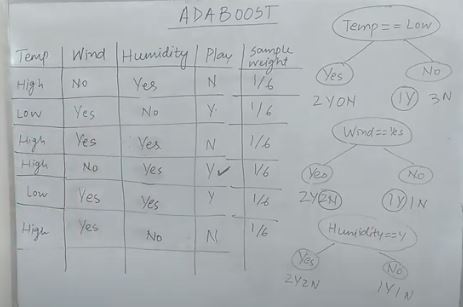 ADABOOST
Temp Wind Humidity Play Sample weight
High No Yes N 1/6
Low Yes No Y 1/6
High Yes Yes N 1/6
High No Yes Y ✓ 1/6
Low Yes Yes Y 1/6
High Yes No N 1/6
Temp == Low
Yes No
2Y0N 1Y 3N
Wind==Yes
Yes No
2Y2N 1Y1N
Humidity==Y
Yes No
2Y2N 1Y1N